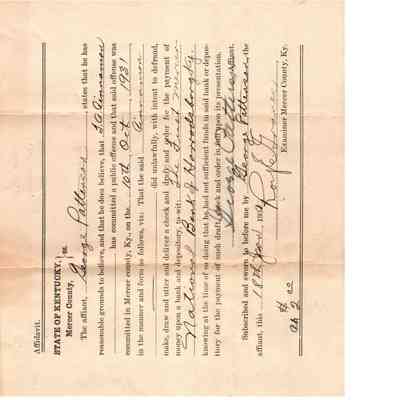 Affidavit.
STATE OF KENTUCKY,
Mercer County, } ss.
The affiant, George Patterson states that he has
reasonable grounds to believe, and that he does believe, that
has committed a public offense and that said offense was
committed in Mercer county, Ky., on the 10th Oct 193
in the manner and form as follows, viz: That the said
did unlawfully, with intent to defraud,
make, draw and utter and deliver a check and draft and order for the payment of
money upon a bank and depository, to-wit: The First Mercer
National Bank of Harrodsburg Ky.
knowing at the time of so doing that he had not sufficient funds in said bank or depos-
itory for the payment of such draft, check and order in full upon its presentation.
George Patterson Affiant.
Subscribed and sworn to before me by George Patterson the
affiant, this 18th 193
Examiner Mercer County, Ky.